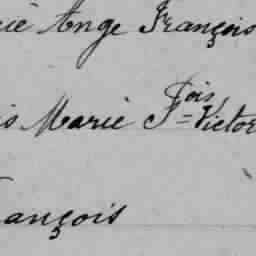 rie Ange François
is Marie Fois = Victor
ançois